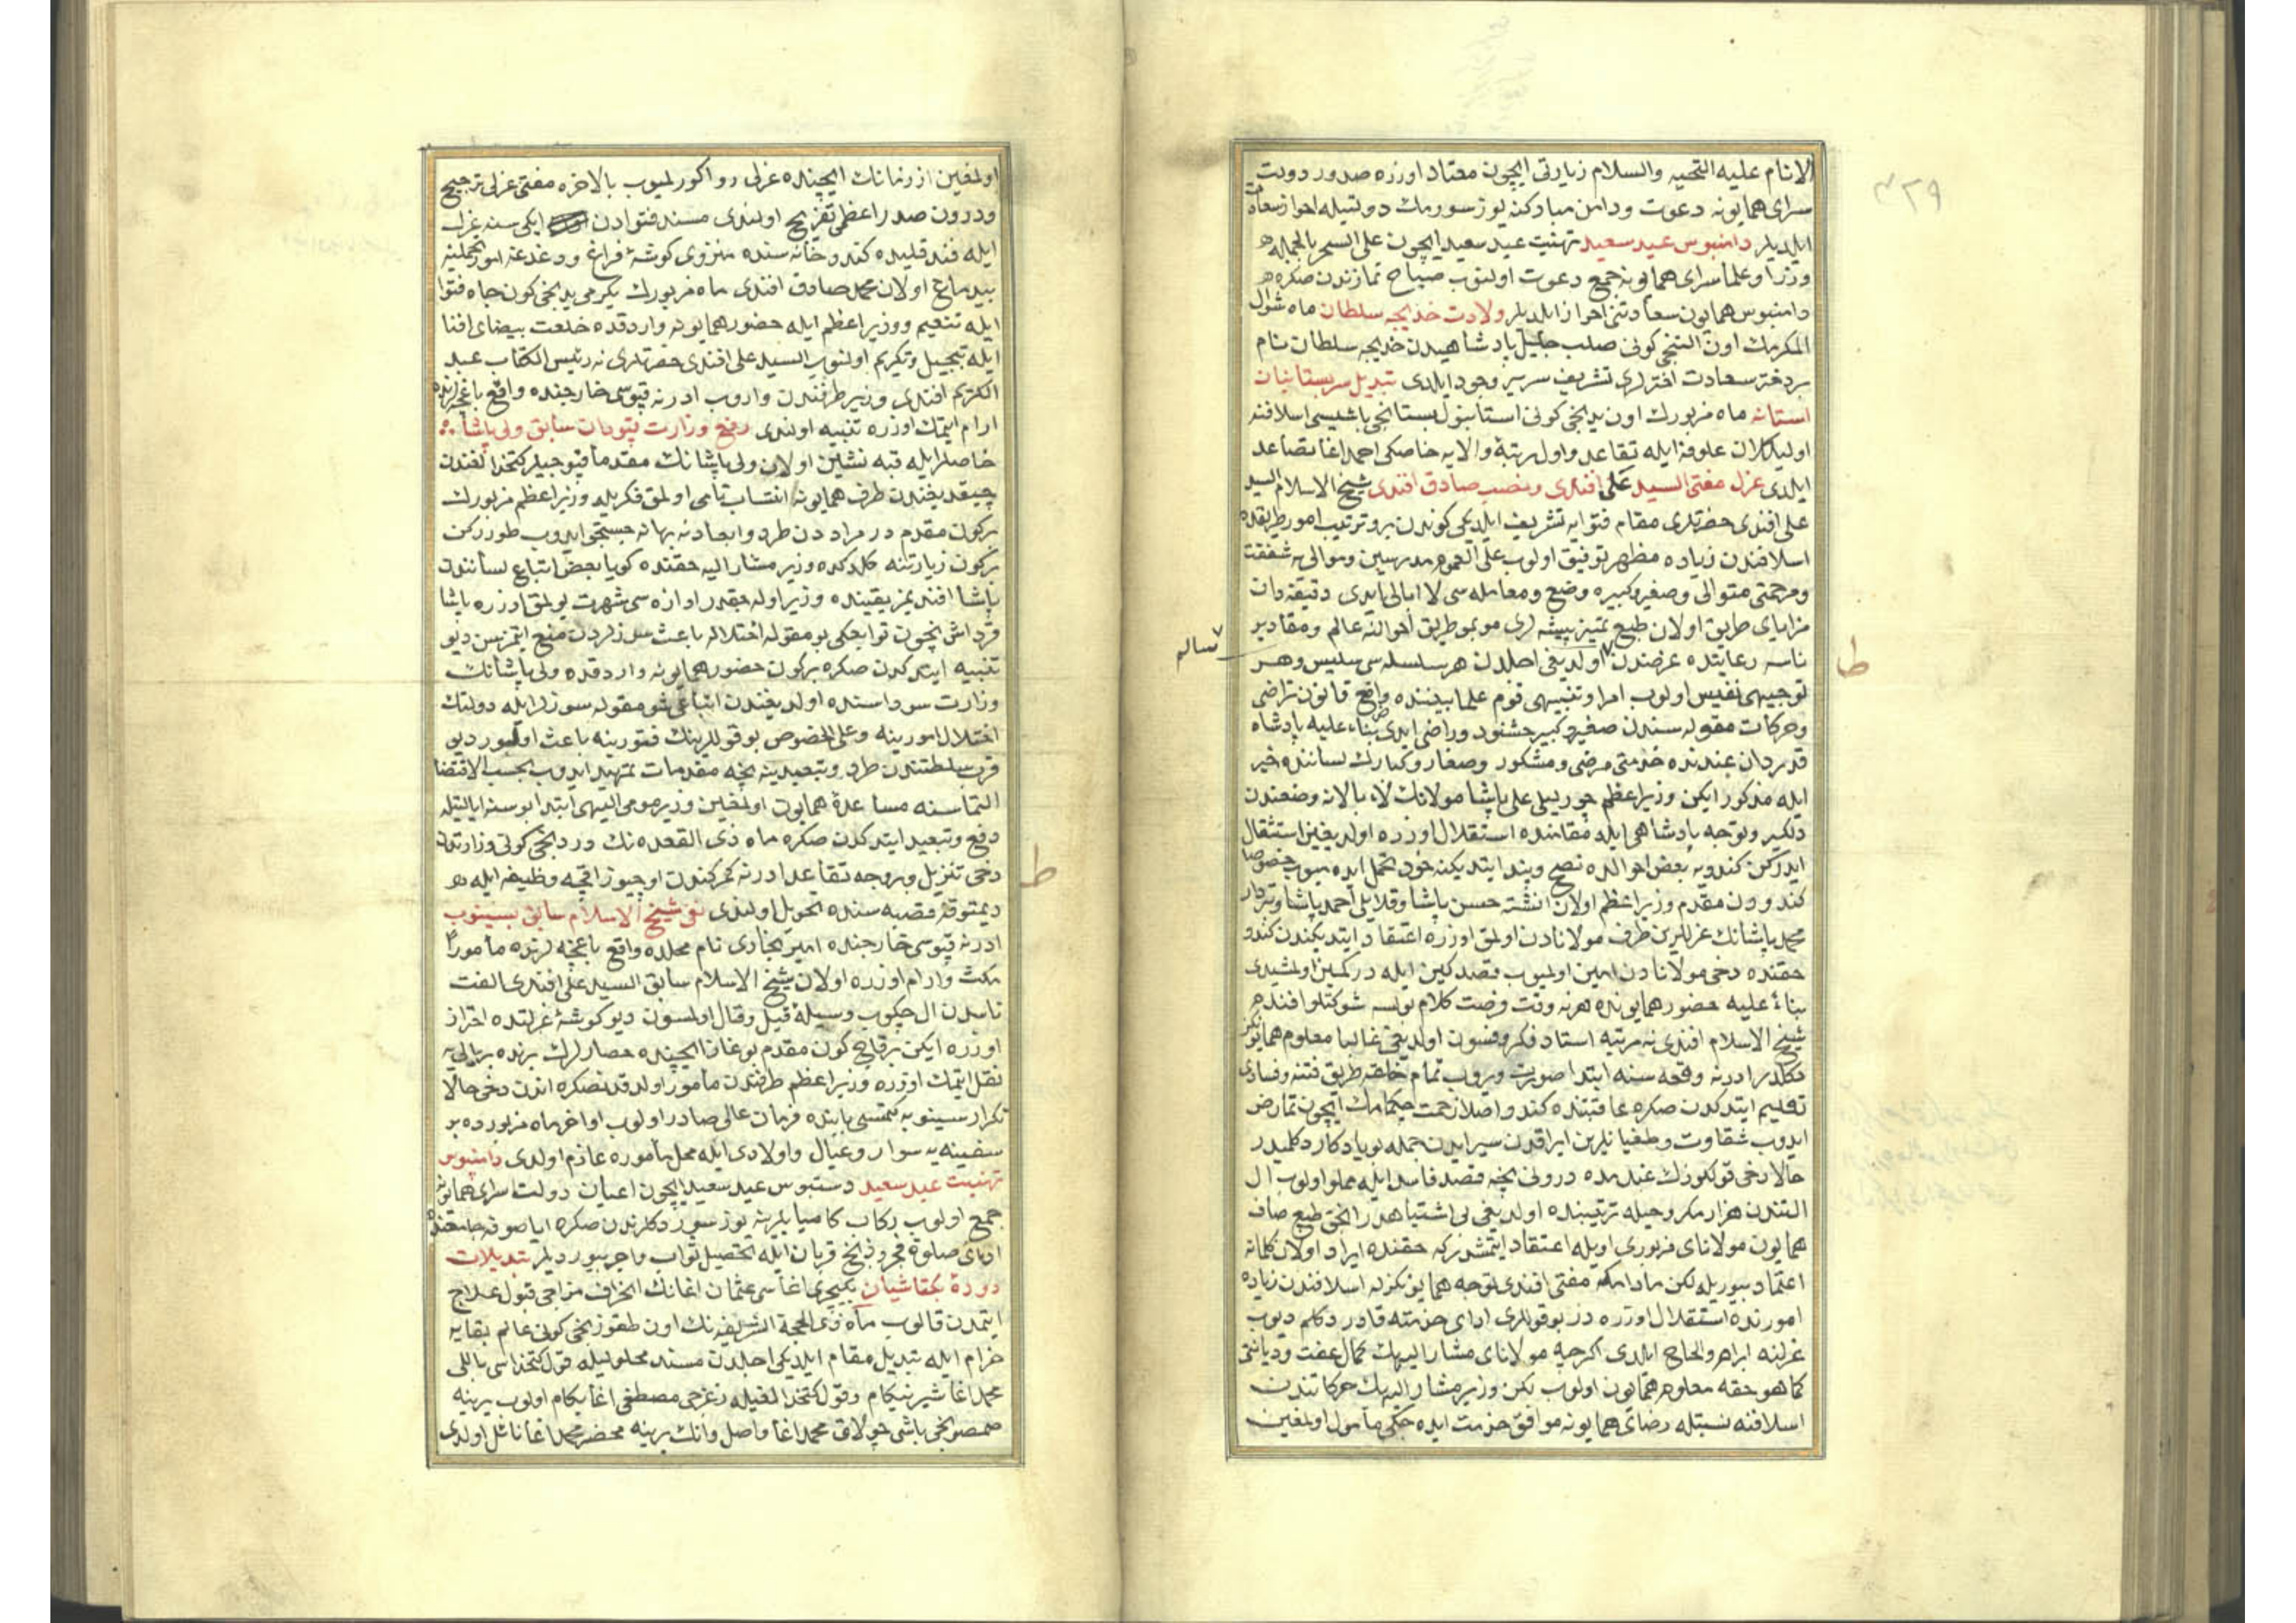 ٣٢٩
الانام عليه التحيه والسلام زيارتى ايچون معتاد اوزره صدور دولت
سراى همايونه دعوت ودامن مباركنه يوز سورمك دولتيله احراز سعادت
ايلديلر دامنبوس عيد سعيد تهنيت عيد سعيد ايچون على السحر بالجمله
وزرا وعلما سراى همايونه جمع دعوت اولنوب صباح نمازندن صكره
دامنبوس همايون سعادتنى احراز ايلديلر ولادت خديجه سلطان ماه شوال
المكرمك اون التنجى كونى صلب جليل پادشاهيدن خديجه سلطان نام
بر دختر سعادت اخترلرى تشريف سرير وجود ايلدى تبديل سر بستانيان
استانه ماه مزبورك اون يدنجى كونى استانبول بستانجى باشيسى اسلافنه
اوليكلان علوفه ايله تقاعد واول رتبۀ والايه خاصكى احمد اغا تصاعد
ايلدى عزل مفتى السيد على افندى ونصب صادق افندى شيخ الاسلام السيد
على افندى حضرتلرى مقام فتوايه تشريف ايلديكى كوندن برو ترتيب امور طريقده
اسلافندن زياده مظهر توفيق اولوب على العموم مدرسين وموالى يه شفقت
ومرحمتى متوالى وصغير وكبيره وضع ومعامله سى لا ابالى ايدى دقيقه دان
مزاياى طريق اولان طبع تميز پيشه لرى موبمو طريق احوالنه عالم ومقادير
ناسه رعايتده عرضندن اولديغى اجلدن هر سلسله سى سليس وهر
سالم
توجيهى نفيس اولوب امر وتنبيهى قوم علما بيننده واقع قانون تراضى
وحركات مقوله سندن صغير وكبير خشنود وراضى ايدى بناء عليه پادشاه
قدردان عندنده خدمتى مرضى ومشكور وصغار وكبارك لساننده خير
ايله مذكور ايكن وزير اعظم چورليلى على پاشا مولانانك لاء بالانه وضعندن
دلكير وتوجه پادشاهى ايله مقامنده استقلال اوزره اولديغين استثقال
ايدركن كندويه بعض احوالده نصح وپند ايتديكنه خود تحمل ايده ميوب خصوصا
كندودن مقدم وزير اعظم اولان انشته حسن پاشا وقلايلى احمد پاشا وتبردار
محمد پاشانك عزللرين طرف مولانادن اولمق اوزره اعتقاد ايتديكندن كندو
حقنده دخى مولانادن امين اولميوب قصد كين ايله در كمين اولمشيدى
بناء عليه حضور همايونده هر نه وقت فرصت كلام بولسه شوكتلو افندم
شيخ الاسلام افندى نه مرتبه استاد فكر وفسون اولديغى غالبا معلوم همايونكز
دكلدر ادرنه وقعه سنه ابتدا صورت ويروب تمام خلقه طريق فتنه وفسادى
تعليم ايتدكدن صكره عاقبتنده كندو اصلا زحمت چكمامك ايچون تمارض
ايدوب شقاوت وطغيانلرين ايراقدن سير ايدن جمله بو يادكار دكلميدر
حالا دخى قولكوزك عندمده درونى نيجه قصد فاسد ايله مملو اولوب ال
التندن هزار مكر وحيله ترتيبنده اولديغى بى اشتباهدر انجق طبع صاف
همايون مولاناى مزبورى اويله اعتقاد ايتمشدر كه حقنده ايراد اولان كلماته
اعتماد بيوريلمه لكن مادامكه مفتى افندى توجه همايونكزله اسلافندن زياده
امورنده استقلال اوزره در بو قوللرى اداى خدمته قادر دكلم ديوب
عزلنه ابرام والحاح ايلدى اكرچه مولاناى مشار اليهك كمال عفت وديانتى
كما هو حقه معلوم همايون اولوب لكن وزير مشار اليهك حركاتندن
اسلافنه نسبتله رضاى همايونه موافق خدمت ايده جكى مأمول اولمغين
اولمغين از زمانك ايچينده عزلى روا كورلميوب بالاخره مفتى عزلى ترجيح
ودرون صدر اعظمى تفريح اولندى مسند فتوادن ايكى سنه عزلت
ايله فندقليده كندو خانه سنده منزوى كوشۀ فراغ ودغدغۀ امور جمليه
بيدماغ اولان محمد صادق افندى ماه مزبورك يكرمى يدنجى كون جاه فتوا
ايله تنعيم ووزير اعظم ايله حضور همايونه واردقده خلعت بيضاى افتا
ايله تبجيل وتكريم اولنوب السيد على افندى حضرتلرى نه رئيس الكتاب عبد
الكريم افندى وزير طرفندن واروب ادرنه قپوسى خارجنده واقع باغچه لرنده
ارام ايتمك اوزره تنبيه اولندى رفع وزارت قپودان سابق ولى پاشا
خاصلر ايله قبه نشين اولان ولى پاشانك مقدما قپوجيلر كتخدالغندن
چيقديغندن طرف همايونه انتساب تامى اولمق فكريله وزير اعظم مزبورك
بركون مقدم در مراددن طرد وابعادنه بهانه جستجى ايدوب طورركن
بركون زيارتنه كلدكده وزير مشار اليه حقنده كويا بعض اتباع لسانندن
پاشا افنديمز يقينده وزير اوله جقدر اوازه سى شهرت بولمق اوزره پاشا
قرداش نيچون توابعكى بو مقوله اختلاله باعث سوزلردن منع ايتمزسن ديو
تنبيه ايتدكدن صكره بركون حضور همايونه واردقده ولى پاشانك
وزارت سوداسنده اولديغندن اتباعى شو مقوله سوزلر ايله دولتك
اختلال امورينه وعلى الخصوص بو قوللرينك فتورينه باعث اوليور ديو
قرب سلطنتدن طرد وتبعيدينه نيجه مقدمات تمهيد ايدوب بحسب الاقتضا
التماسنه مساعدۀ همايون اولمغين وزير مومى اليهى ابتدا بوسنه ايالتيله
دفع وتبعيد ايتدكدن صكره ماه ذى القعده نك دردنجى كونى وزارتدن
دخى تنزيل وبر وجه تقاعد ادرنه كمركندن اوچيوز اقچه وظيفه ايله
ديمتوقه قصبه سنده تحويل اولندى نفى شيخ الاسلام سابق بسينوب
ادرنه قپوسى خارجنده امير بخارى نام محلده واقع باغچه لرنده مأمورا
مكث وارام اوزره اولان شيخ الاسلام سابق السيد على افندى الفت
ناسدن ال چكوب وسيلۀ قيل وقال اولمسون ديو كوشۀ عزلتده احتراز
اوزره ايكن بر قاچ كون مقدم بوغاز ايچينده حصارلرك برنده بر يالى يه
نقل ايتمك اوزره وزير اعظم طرفندن مأمور اولدقدنصكره اندن دخى حالا
تكرار سينوبه كيتمسى بابنده فرمان عالى صادر اولوب اواخر ماه مزبورده بر
سفينه يه سوار وعيال واولادى ايله محل مأموره عازم اولدى دامنبوس
تهنيت عيد سعيد دستبوس عيد سعيد ايچون اعيان دولت سراى همايونه
جمع اولوب ركاب كاميابلرينه يوز سوردكلرندن صكره اياصوفيه جامعنده
اداى صلوة فجر وذبح قربان ايله تحصيل ثواب واجر بيورديلر تبديلات
دورۀ بكتاشيان يكيچرى اغاسى عثمان اغانك انحراف مزاجى قبول علاج
ايتمدن قالوب ماه ذى الحجة الشريفه نك اون طقوزنجى كونى عالم بقايه
خرام ايله تبديل مقام ايلديكى اجلدن مسند محلوليله قول كتخداسى بالى
محمد اغا شيرينكام وقول كتخدالغيله زغرجى مصطفى اغا بكام اولوب يرينه
صمصونجى باشى چولاق محمد اغا واصل وانك يرينه محضر محمد اغا نائل اولدى